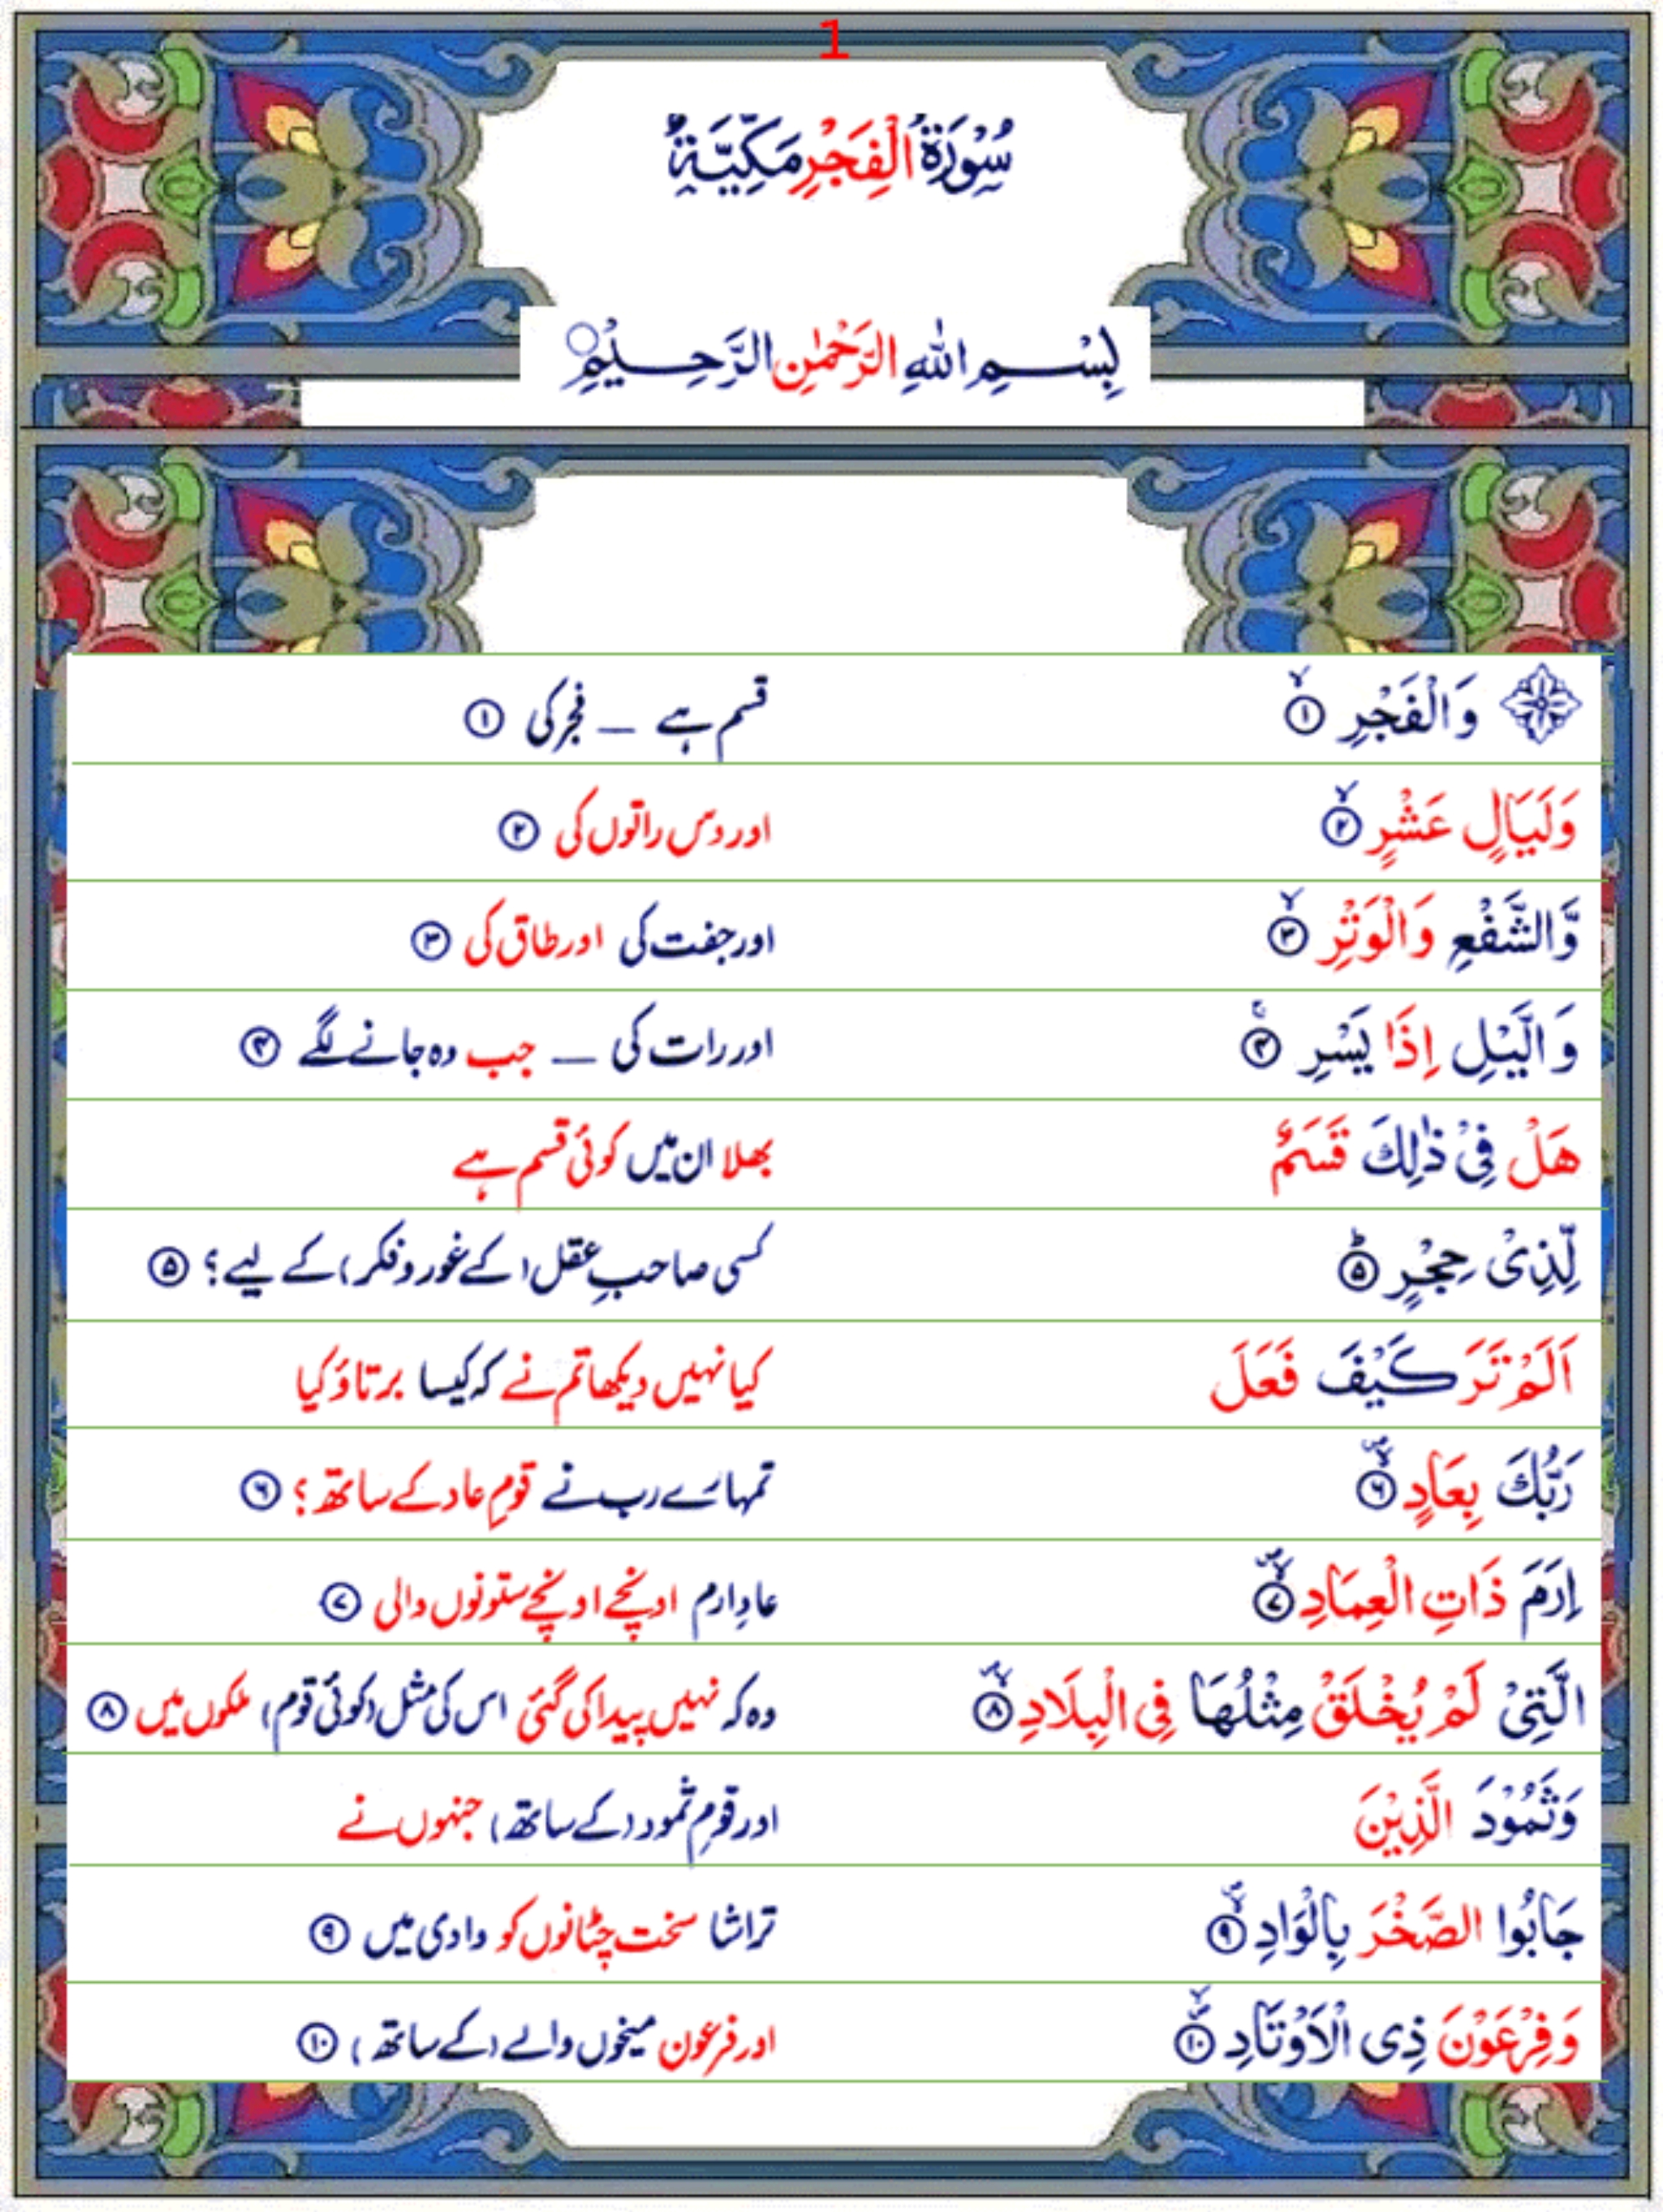 1
سُوْرَةُ الْفَجْرِ مَكِّيَّةٌ
بِسْمِ اللّٰهِ الرَّحْمٰنِ الرَّحِيْمِ
وَالْفَجْرِ ۙ﴿۱﴾ قسم ہے — فجر کی ﴿۱﴾
وَلَيَالٍ عَشْرٍ ۙ﴿۲﴾ اور دس راتوں کی ﴿۲﴾
وَّالشَّفْعِ وَالْوَتْرِ ۙ﴿۳﴾ اور جفت کی اور طاق کی ﴿۳﴾
وَالَّيْلِ اِذَا يَسْرِ ۚ﴿۴﴾ اور رات کی — جب وہ جانے لگے ﴿۴﴾
هَلْ فِىْ ذٰلِكَ قَسَمٌ بھلا ان میں کوئی قسم ہے
لِّذِىْ حِجْرٍ ؕ﴿۵﴾ کسی صاحبِ عقل (کے غور و فکر) کے لیے؟ ﴿۵﴾
اَلَمْ تَرَ كَيْفَ فَعَلَ کیا نہیں دیکھا تم نے کہ کیسا برتاؤ کیا
رَبُّكَ بِعَادٍ ۪ۙ﴿۶﴾ تمہارے رب نے قومِ عاد کے ساتھ؟ ﴿۶﴾
اِرَمَ ذَاتِ الْعِمَادِ ۪ۙ﴿۷﴾ عادِ ارم اونچے اونچے ستونوں والی ﴿۷﴾
الَّتِىْ لَمْ يُخْلَقْ مِثْلُهَا فِى الْبِلَادِ ۪ۙ﴿۸﴾ وہ کہ نہیں پیدا کی گئی اس کی مثل (کوئی قوم) ملکوں میں ﴿۸﴾
وَثَمُوْدَ الَّذِيْنَ اور قومِ ثمود (کے ساتھ) جنہوں نے
جَابُوا الصَّخْرَ بِالْوَادِ ۪ۙ﴿۹﴾ تراشا سخت چٹانوں کو وادی میں ﴿۹﴾
وَفِرْعَوْنَ ذِى الْاَوْتَادِ ۙ﴿۱۰﴾ اور فرعون میخوں والے (کے ساتھ) ﴿۱۰﴾